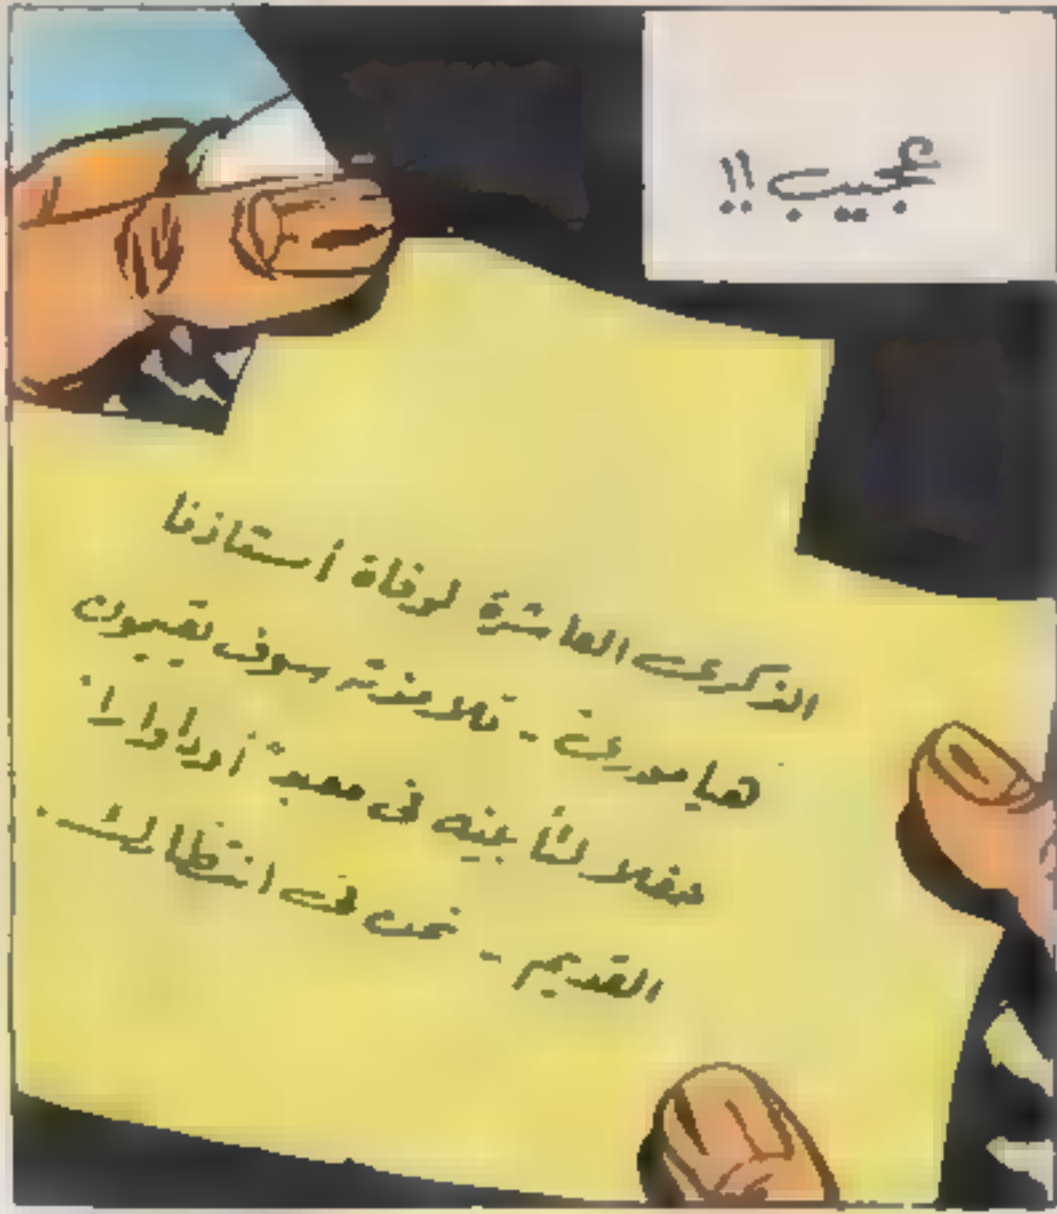 عجيب!!
الذكرى العاشرة لوفاة أستاذنا
هامورى - تلامذته سوف يقيمون
حفلا لتأبينه فى معبد "أوداوارا"
القديم - نحن فى انتظارك.